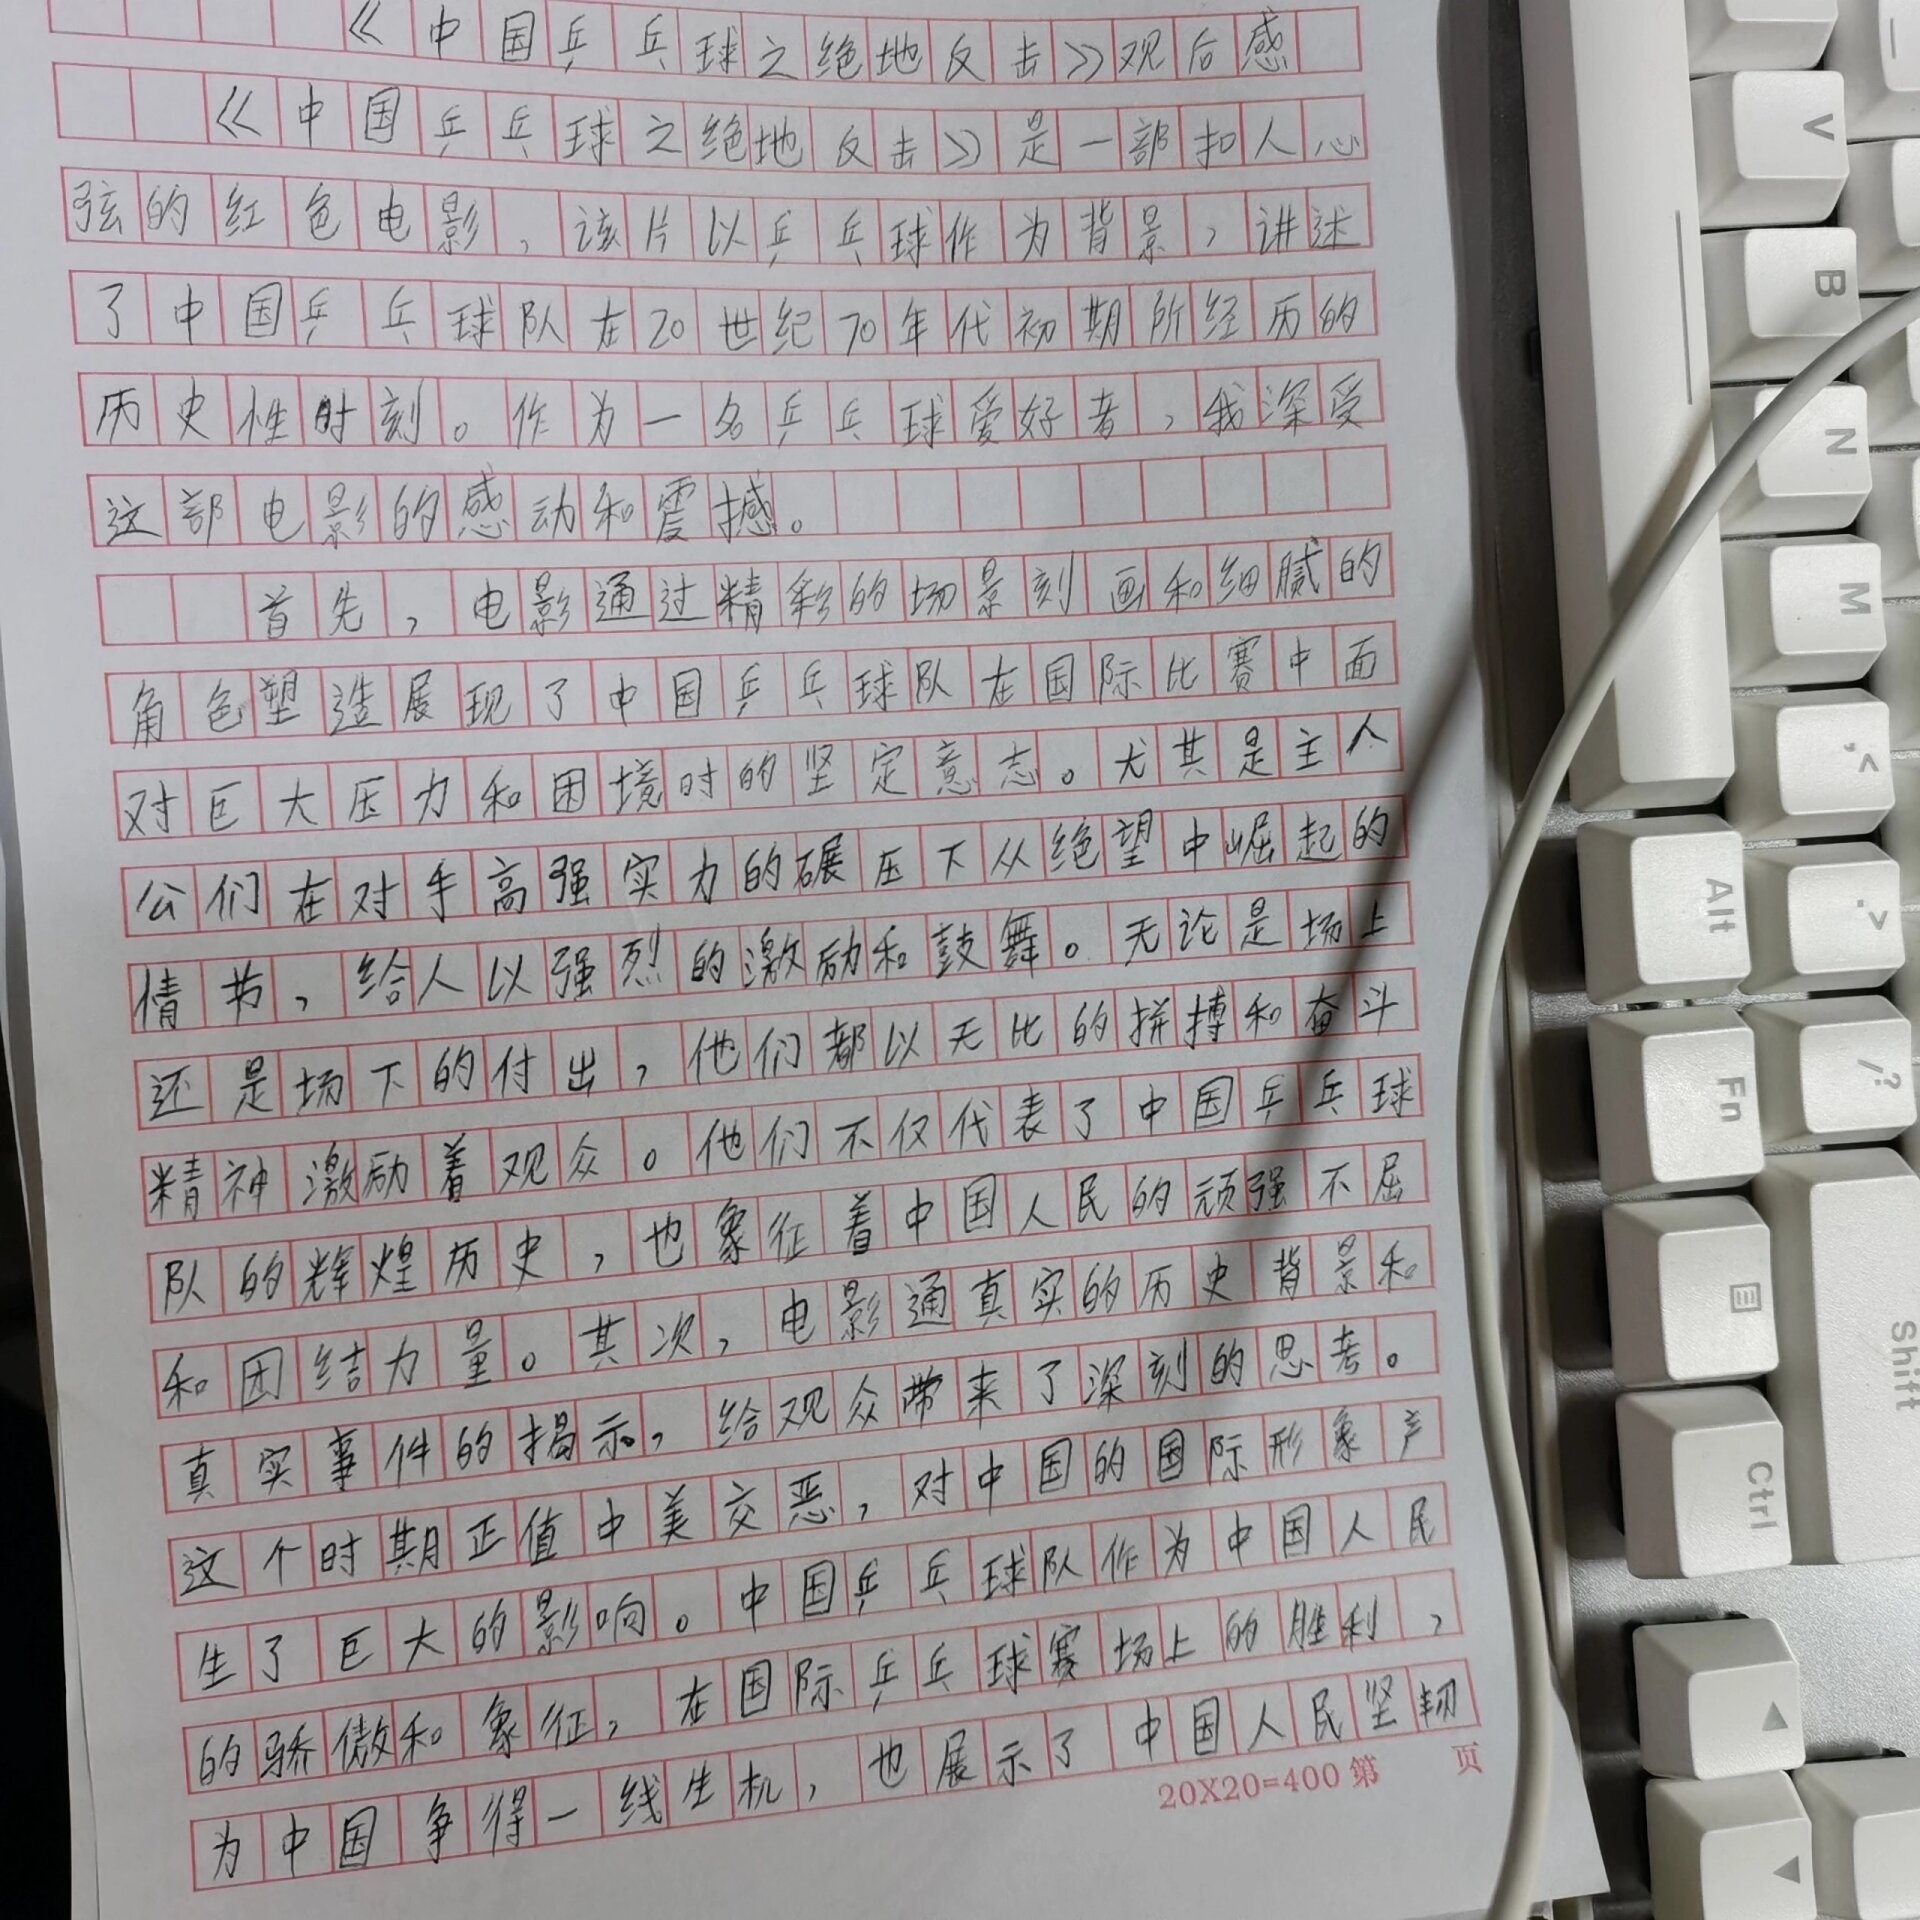 《中国乒乓球之绝地反击》观后感
《中国乒乓球之绝地反击》是一部扣人心
弦的红色电影,该片以乒乓球作为背景,讲述
了中国乒乓球队在20世纪70年代初期所经历的
历史性时刻。作为一名乒乓球爱好者,我深受
这部电影的感动和震撼。
首先,电影通过精彩的场景刻画和细腻的
角色塑造展现了中国乒乓球队在国际比赛中面
对巨大压力和困境时的坚定意志。尤其是主人
公们在对手高强实力的碾压下从绝望中崛起的
情节,给人以强烈的激励和鼓舞。无论是场上
还是场下的付出,他们都以无比的拼搏和奋斗
精神激励着观众。他们不仅代表了中国乒乓球
队的辉煌历史,也象征着中国人民的顽强不屈
和团结力量。其次,电影通真实的历史背景和
真实事件的揭示,给观众带来了深刻的思考。
这个时期正值中美交恶,对中国的国际形象产
生了巨大的影响。中国乒乓球队作为中国人民
的骄傲和象征,在国际乒乓球赛场上的胜利,
为中国争得一线生机,也展示了中国人民坚韧
20X20=400 第 页
V
B
N
M
,<
.>
/?
Alt
Fn
Ctrl
Shift